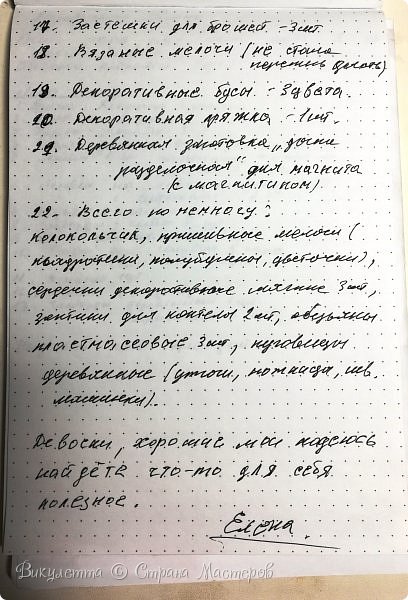 17. Застёжки для брошей - 3 шт.
18. Вязаные мелочи (не стала
перечислять)
19. Декоративные бусы - 3 цвета.
20. Декоративная пряжка - 1 шт.
21. Деревянная заготовка „доски
разделочная" для магнита
(с магнитиком)
22. Всего понемногу:
колокольчик, пришивные мелочи (
квадратики, полубусины, цветочки),
сердечки декоративные мягкие 3 шт,
зонтики для коктейля 2 шт, обезьяны
пластмассовые 3 шт, пуговицы
деревянные (утюги, ножницы, шв.
машинки).
Девочки, хорошие мои надеюсь
найдёте что-то для себя
полезное.
Елена.
Викулеттa © Страна Мастеров